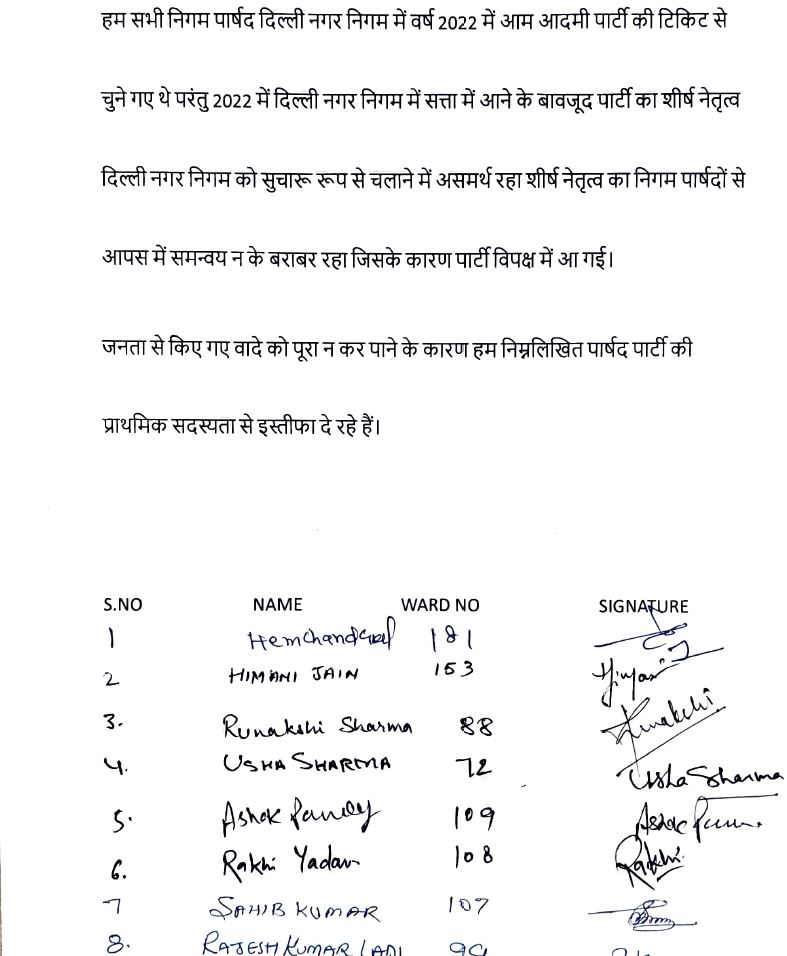 हम सभी निगम पार्षद दिल्ली नगर निगम में वर्ष 2022 में आम आदमी पार्टी की टिकिट से
चुने गए थे परंतु 2022 में दिल्ली नगर निगम में सत्ता में आने के बावजूद पार्टी का शीर्ष नेतृत्व
दिल्ली नगर निगम को सुचारू रूप से चलाने में असमर्थ रहा शीर्ष नेतृत्व का निगम पार्षदों से
आपस में समन्वय न के बराबर रहा जिसके कारण पार्टी विपक्ष में आ गई।
जनता से किए गए वादे को पूरा न कर पाने के कारण हम निम्नलिखित पार्षद पार्टी की
प्राथमिक सदस्यता से इस्तीफा दे रहे हैं।
S.NO NAME WARD NO SIGNATURE
1 181
2 HIMANI JAIN 153
3. Runakshi Sharma 88
4. USHA SHARMA 72 Usha Sharma
5. Ashok Pandey 109
6. Rakhi Yadav 108 Rakhi
7 SAHIB KUMAR 107
8. RAJESH KUMAR LADI